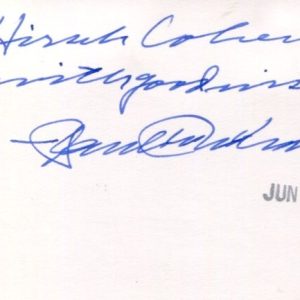 Hirsh Cohen
with good wis
Paul
JUN